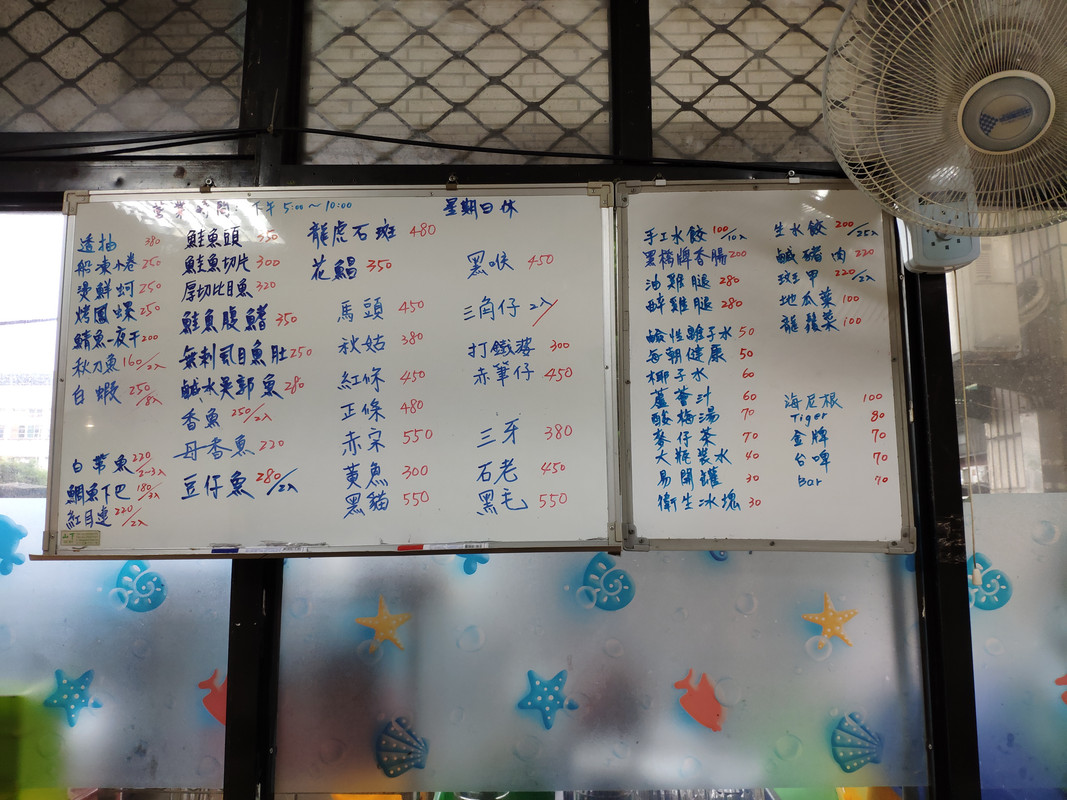 營業時間: 下午 5:00～10:00
星期日休
透抽 380
船凍小卷 250
燙鮮蚵 250
烤鳳螺 250
鯖魚一夜干 200
秋刀魚 160/2入
白蝦 250/8入
白帶魚 220/2-3入
鯛魚下巴 180/3入
紅目連 220/2入
鮭魚頭 350
鮭魚切片 300
厚切比目魚 320
鮭魚腹鰭 350
無刺虱目魚肚 250
鹹水吳郭魚 280
香魚 250/2入
母香魚 220
豆仔魚 280/2入
龍虎石斑 480
花鯧 350
馬頭 450
秋姑 380
紅條 450
正條 480
赤宗 550
黃魚 300
黑貓 550
黑喉 450
三角仔 2入/
打鐵婆 300
赤筆仔 450
三牙 380
石老 450
黑毛 550
手工水餃 100/10入
黑橋牌香腸 200
油雞腿 280
醉雞腿 280
鹼性離子水 50
每朝健康 50
椰子水 60
蘆薈汁 60
酸梅湯 70
麥仔茶 70
大瓶裝水 40
易開罐 30
衛生冰塊 30
生水餃 200/25入
鹹豬肉 220
斑甲 220/2入
地瓜葉 100
龍鬚菜 100
海尼根 100
Tiger 80
金牌 70
台啤 70
Bar 70